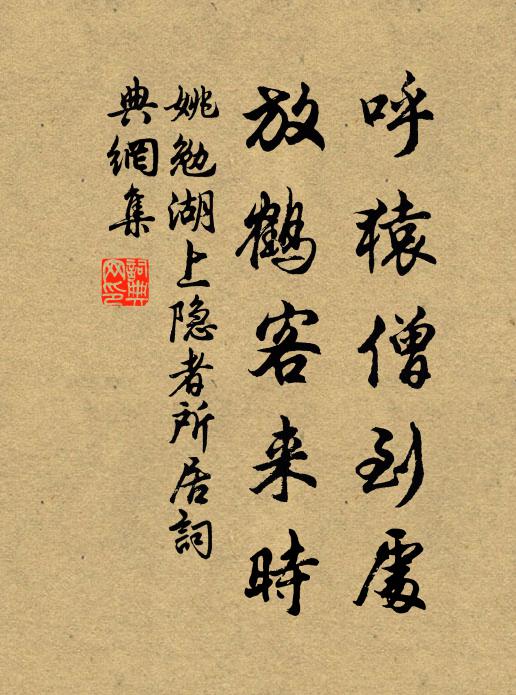 呼猿僧到處
放鶴客来時
姚勉湖上隐者所居詞
典網集
詞典
网印